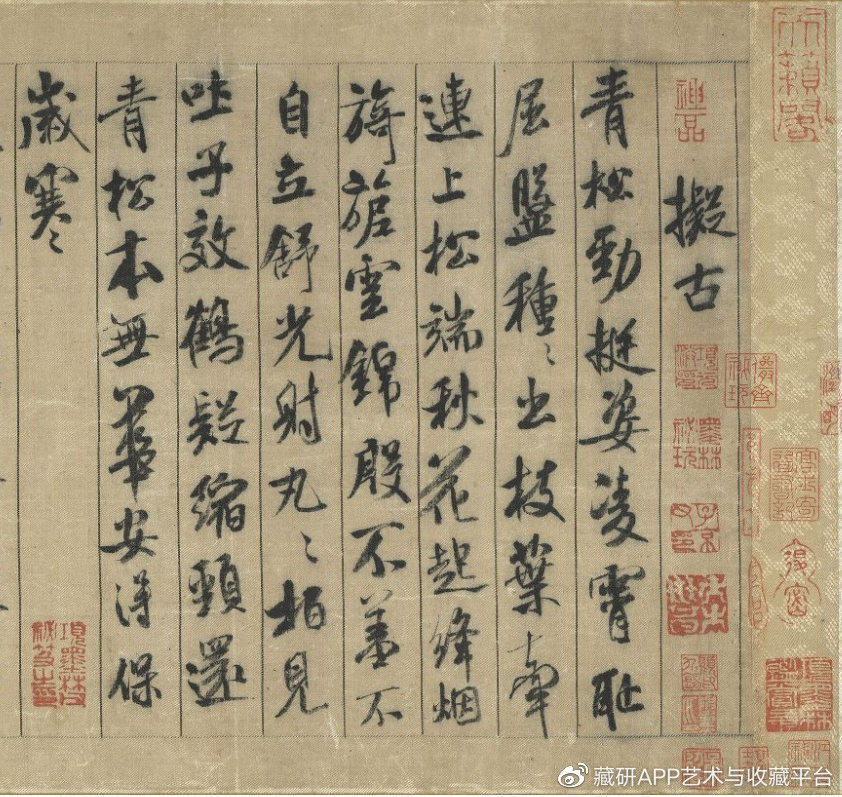 神品
擬古
青松勁挺姿凌霄耻
屈盤種〻出枝葉牽
連上松端秋花起絳烟
旖旎雲錦殷不羞不
自立舒光射丸〻柏見
吐子效鶴疑縮頸還
青松本無華安得保
歲寒〻
藏研APP艺术与收藏平台